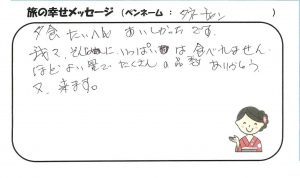 旅の幸せメッセージ（ペンネーム：            ）
夕食たいへん おいしかったです.
我々、そんなにいっぱいは食べれません.
ほどよい量でたくさんの品数 ありがとう.
又、来ます。